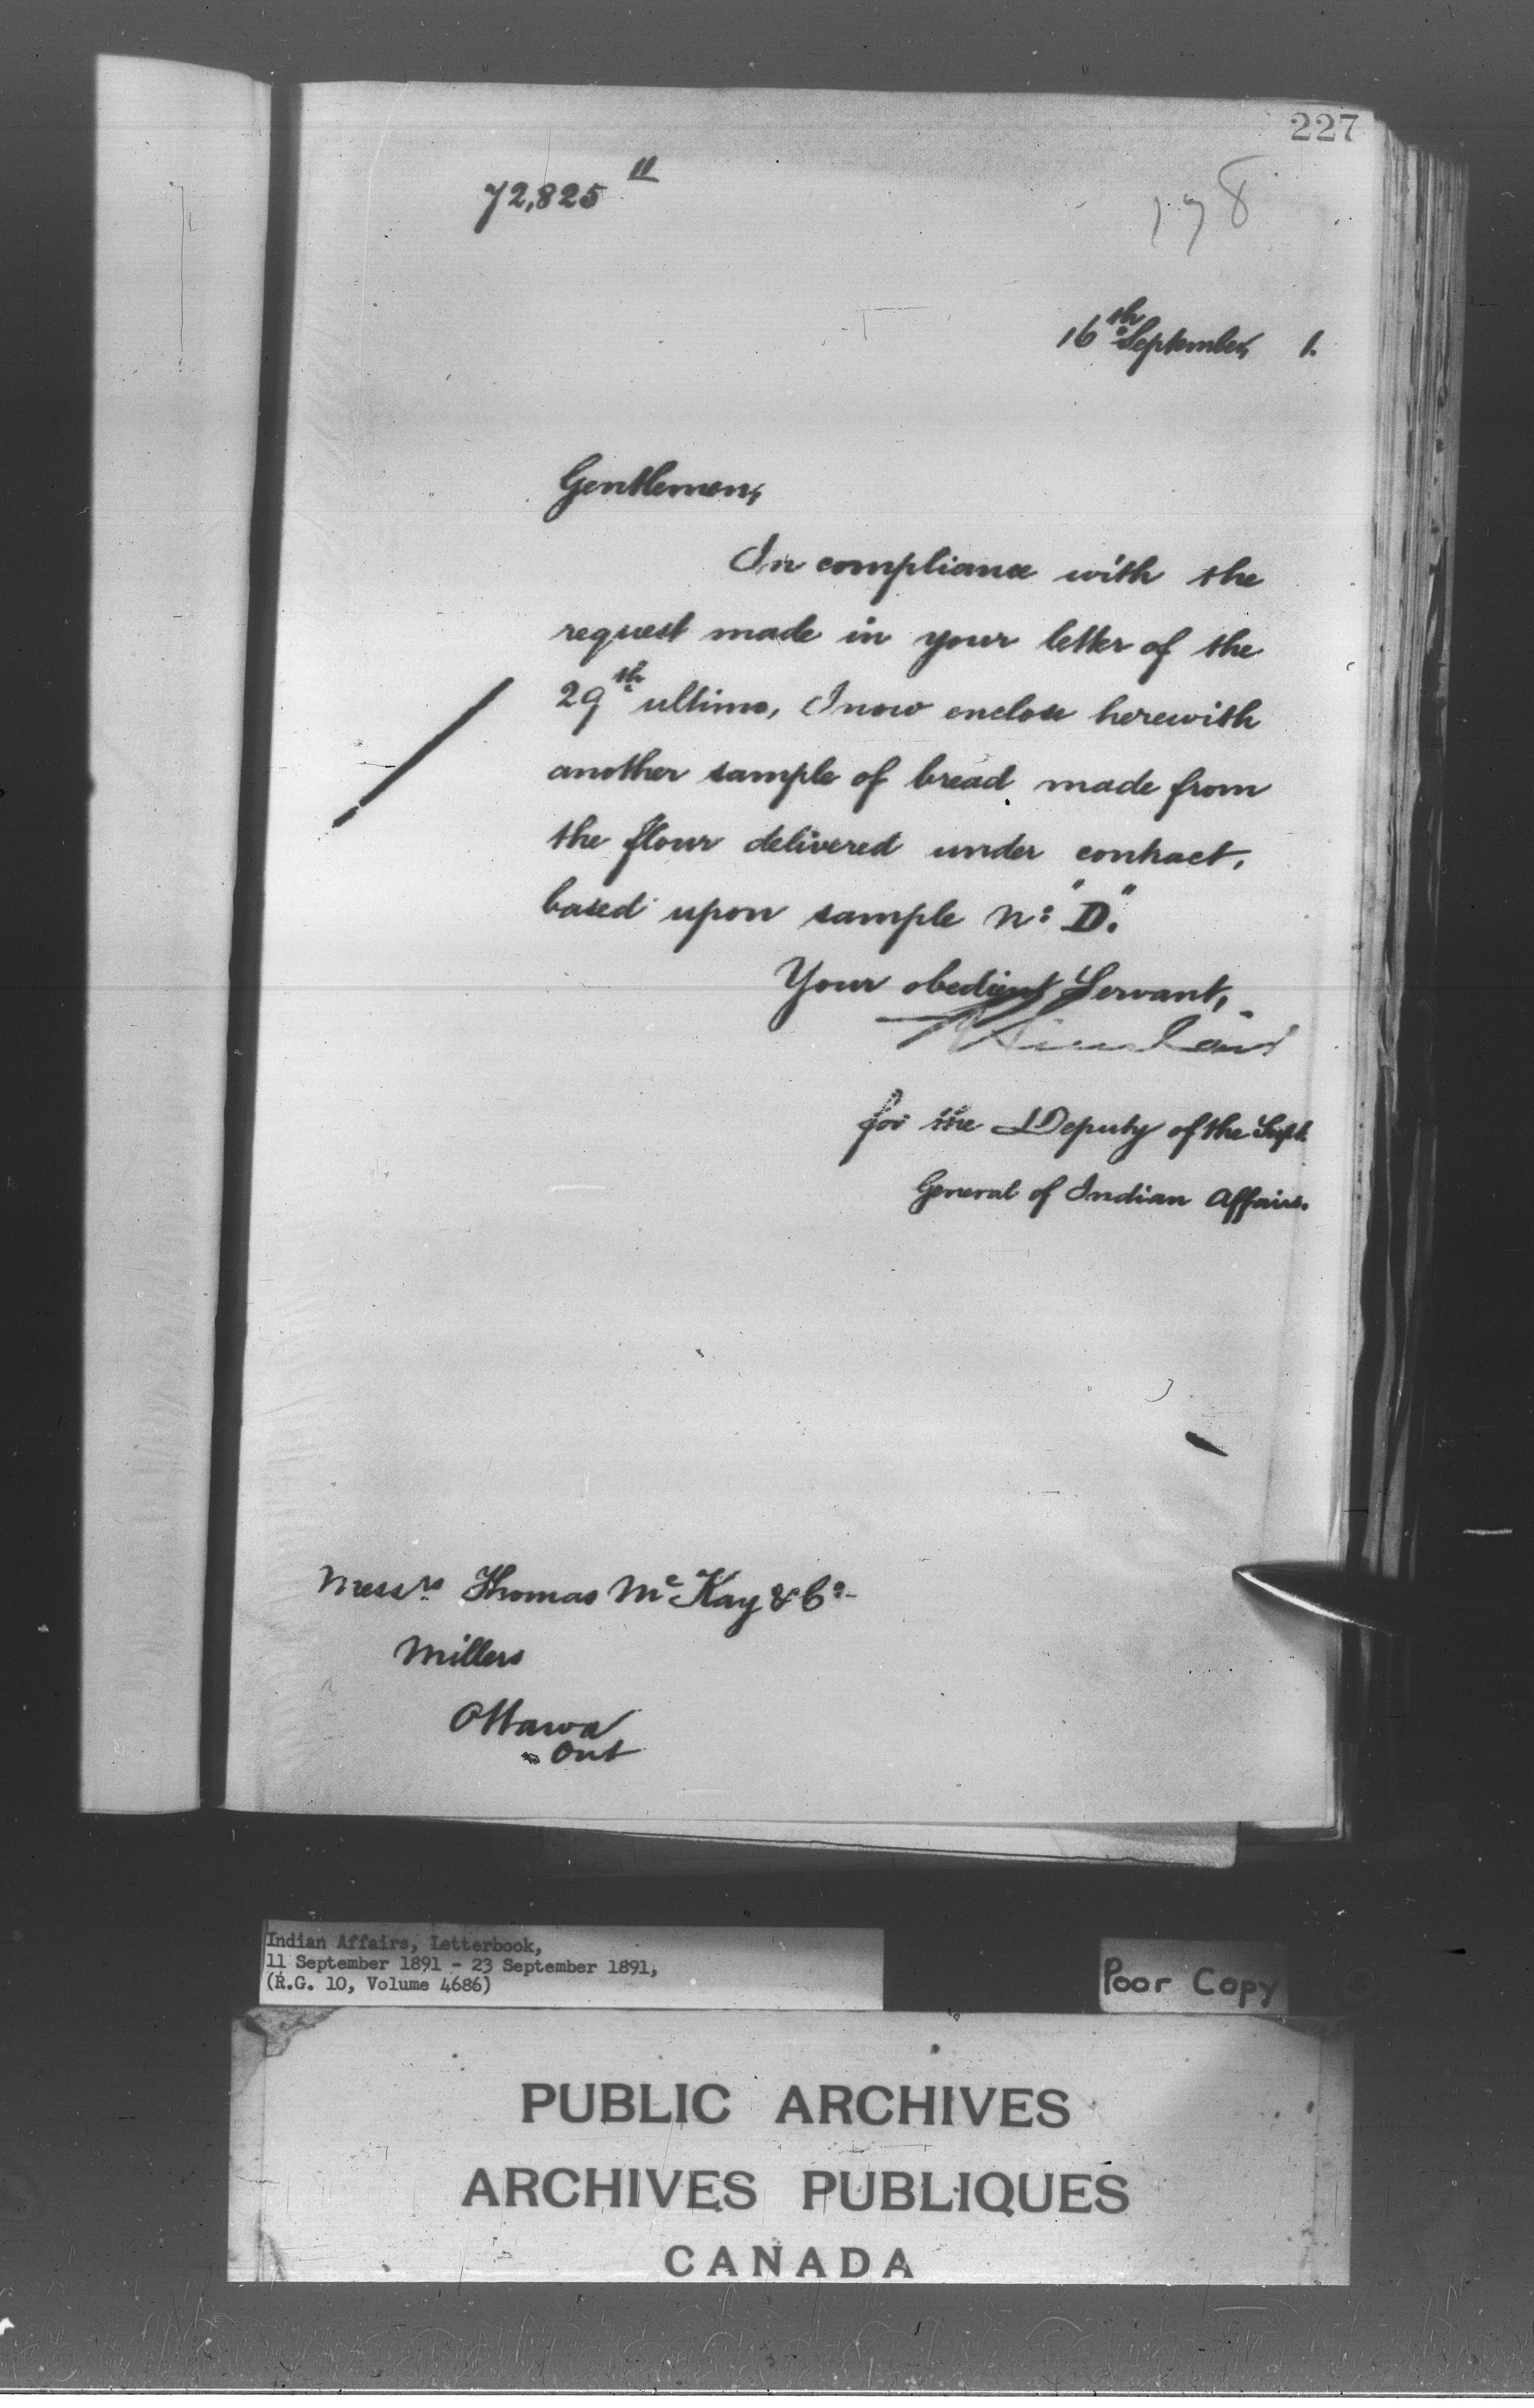 227
72,825 11
178
16th September, 1.
Gentlemen,
In compliance with the
request made in your letter of the
29th ultimo, I now enclose herewith
another sample of bread made from
the flour delivered under contract,
based upon sample No: "D".
Your obedient Servant,
for the Deputy of the Supt.
General of Indian Affairs.
Messrs. Thomas McKay & Co.
Millers
Ottawa
Ont
Indian Affairs, Letterbook,
11 September 1891 - 23 September 1891,
(R.G. 10, Volume 4686)
Poor Copy
PUBLIC ARCHIVES
ARCHIVES PUBLIQUES
CANADA